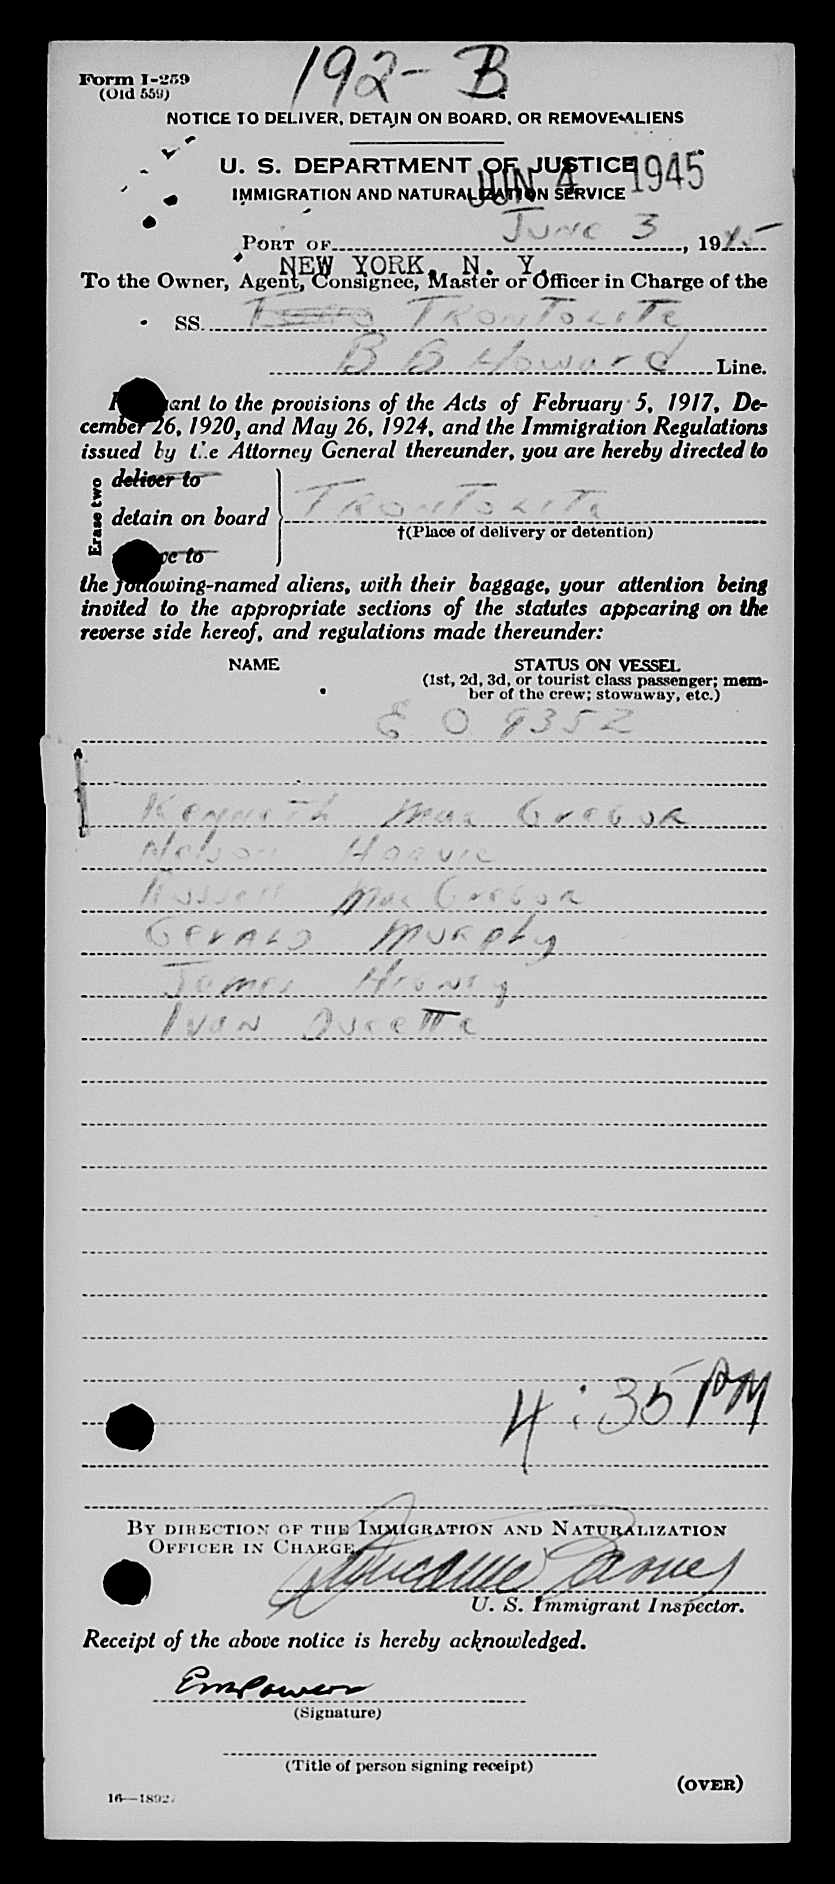 Form I-259 192-B
(Old 559)
NOTICE TO DELIVER, DETAIN ON BOARD, OR REMOVE ALIENS
U. S. DEPARTMENT OF JUSTICE
JUN 4 1945
IMMIGRATION AND NATURALIZATION SERVICE
PORT OF June 3, 1945
NEW YORK, N. Y.
To the Owner, Agent, Consignee, Master or Officer in Charge of the
SS. TRONTOLITE
B B Howard Line.
ant to the provisions of the Acts of February 5, 1917, De-
cember 26, 1920, and May 26, 1924, and the Immigration Regulations
issued by the Attorney General thereunder, you are hereby directed to
Erase two
deliver to
detain on board TRONTOLITE
†(Place of delivery or detention)
ve to
the following-named aliens, with their baggage, your attention being
invited to the appropriate sections of the statutes appearing on the
reverse side hereof, and regulations made thereunder:
NAME STATUS ON VESSEL
(1st, 2d, 3d, or tourist class passenger; mem-
ber of the crew; stowaway, etc.)
E O 9352
Kenneth Mac Gregor
Nelson
Russell Mac Gregor
Gerald Murphy
James
Ivan
4:35 PM
BY DIRECTION OF THE IMMIGRATION AND NATURALIZATION
OFFICER IN CHARGE
U. S. Immigrant Inspector.
Receipt of the above notice is hereby acknowledged.
EM Powers
(Signature)
(Title of person signing receipt)
(OVER)